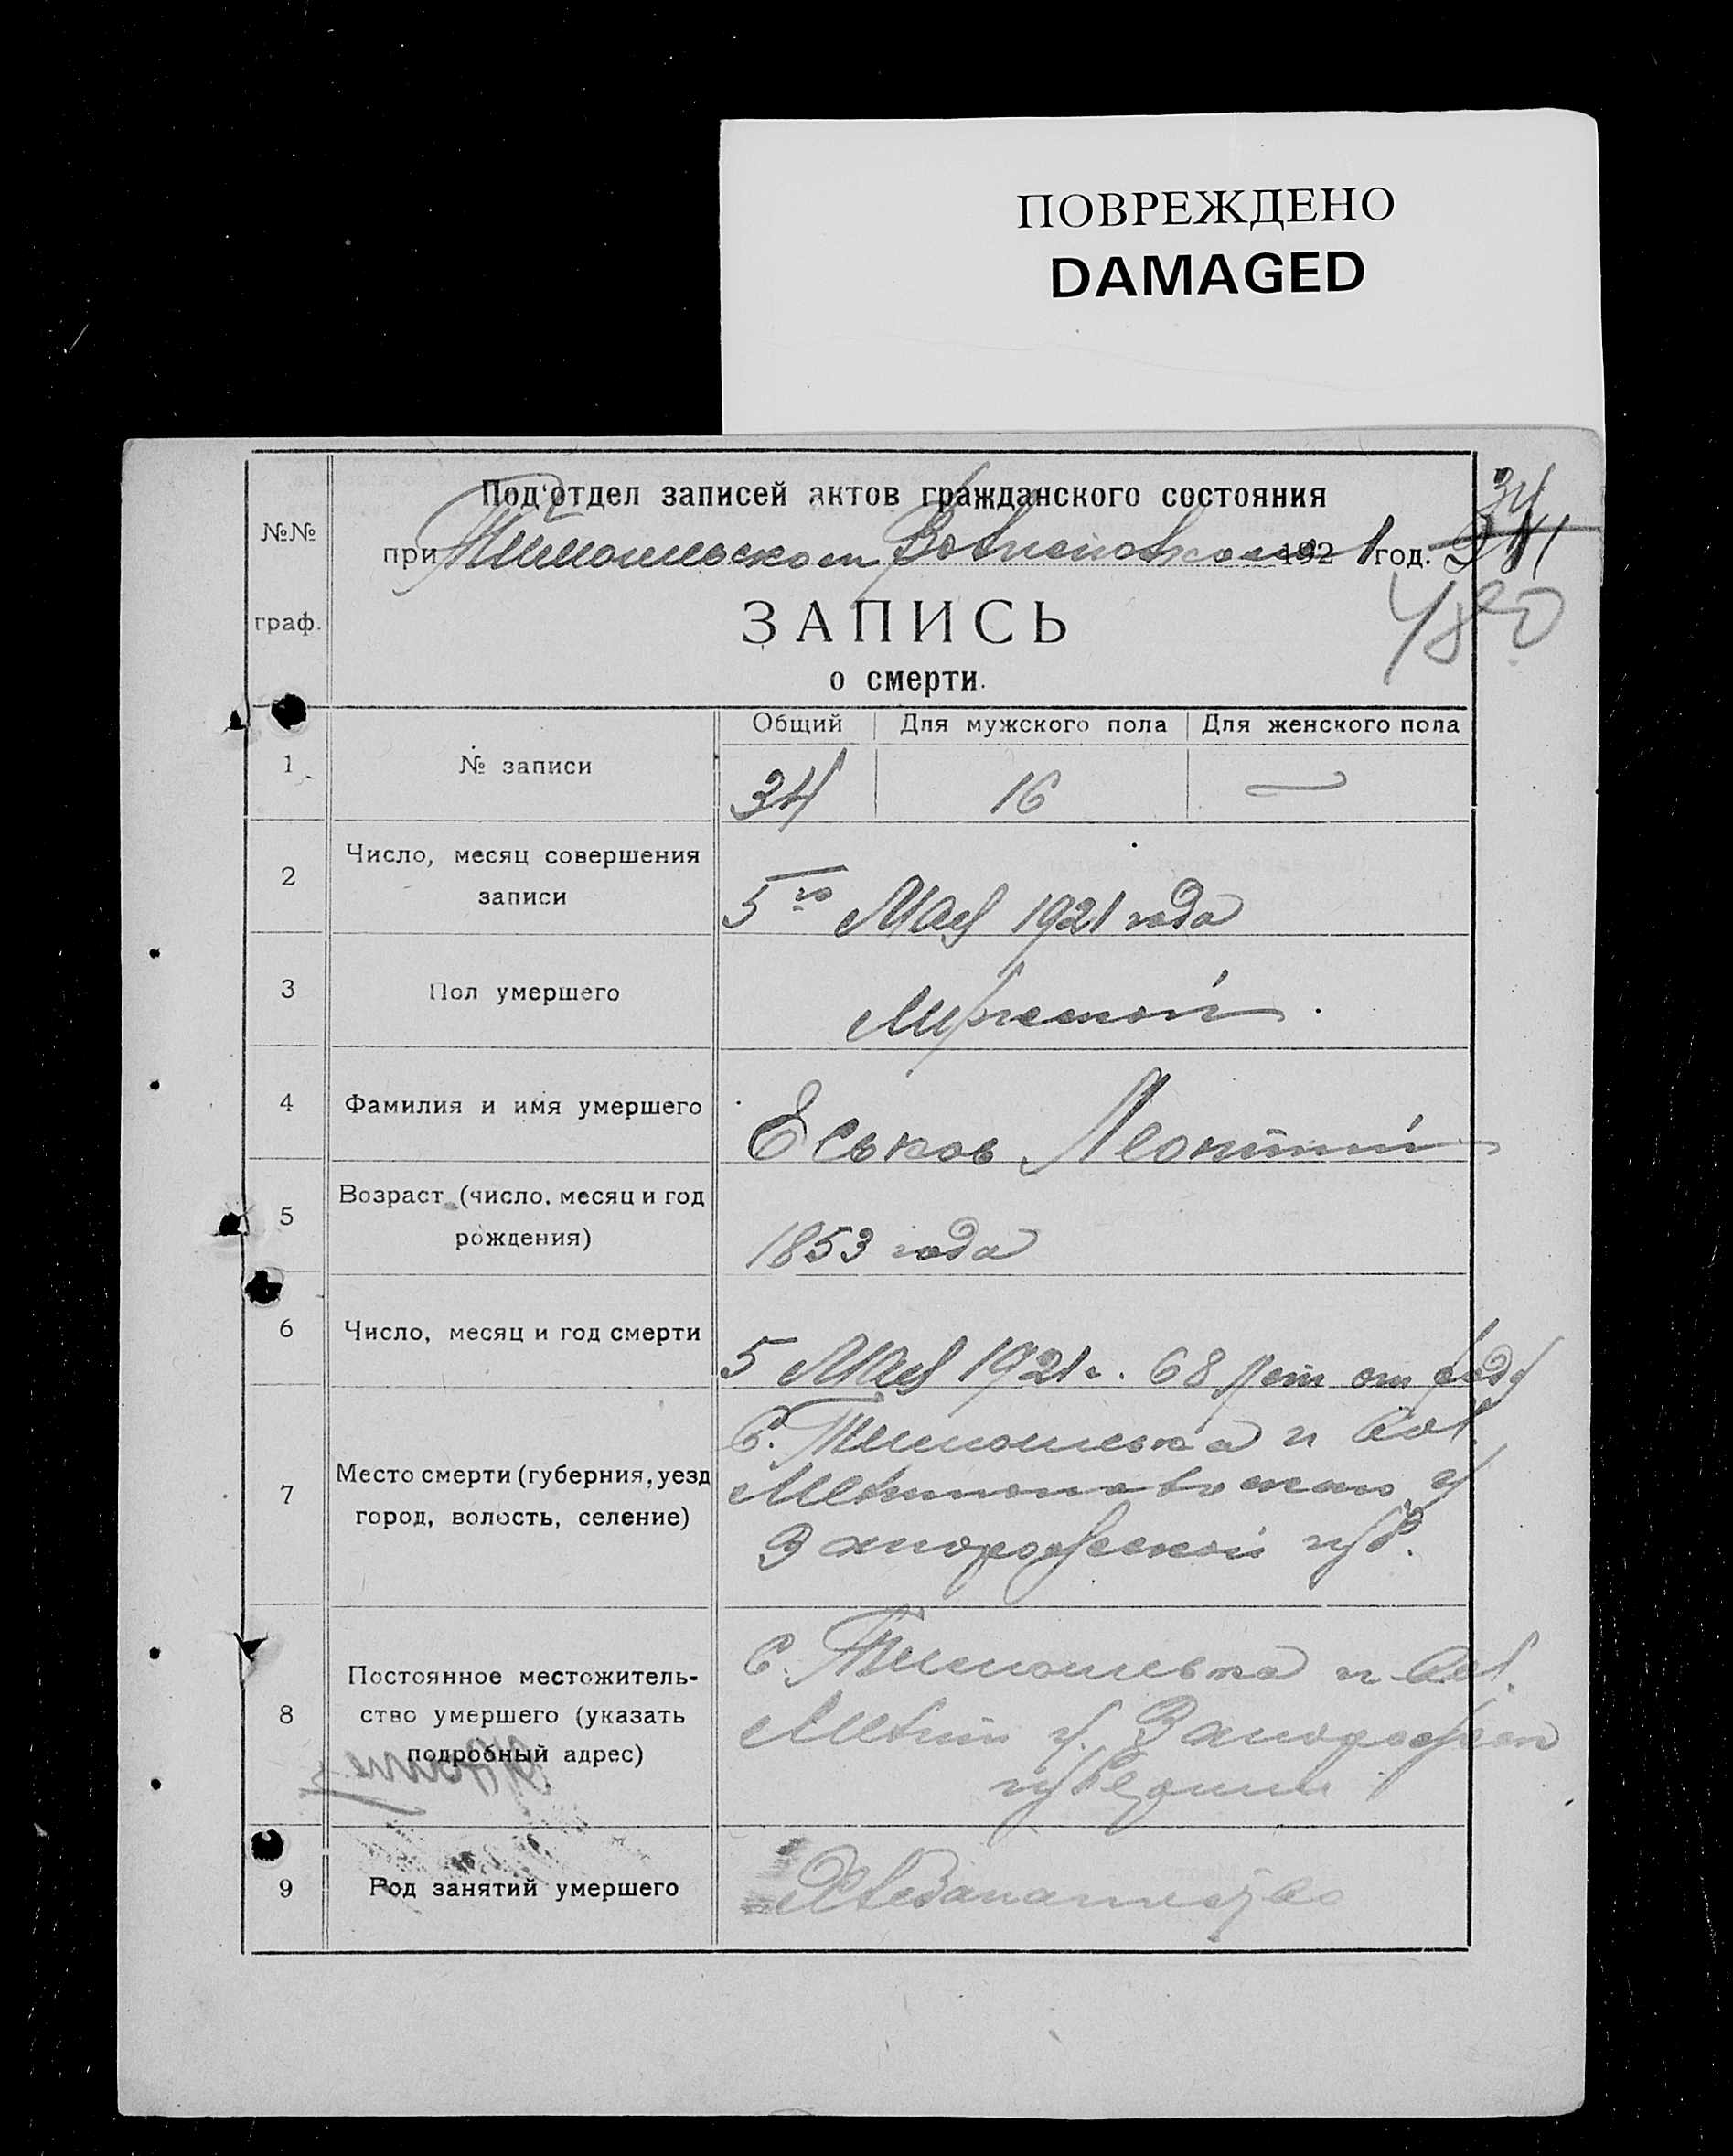 ПОВРЕЖДЕНО
DAMAGED
Подотдел записей актов гражданского состояния
№№ граф.
при Тимошовском Волисполкоме 1921 год.
34
480
ЗАПИСЬ
о смерти.
Общий Для мужского пола Для женского пола
1 № записи 34 16 —
2 Число, месяц совершения
записи
5го Мая 1921 года
3 Пол умершего Мужской
4 Фамилия и имя умершего Еськов Леонтий
5 Возраст (число, месяц и год
рождения)
1853 года
6 Число, месяц и год смерти 5 Мая 1921 г. 68 лет от роду
7 Место смерти (губерния, уезд
город, волость, селение)
С. Тимошевка и вол.
Мелитопольского у
Запорожской губ.
8 Постоянное местожитель-
ство умершего (указать
подробный адрес)
С. Тимошевка и вол.
Мелит у. Запорожск
губернии
9 Род занятий умершего Хлебопашество